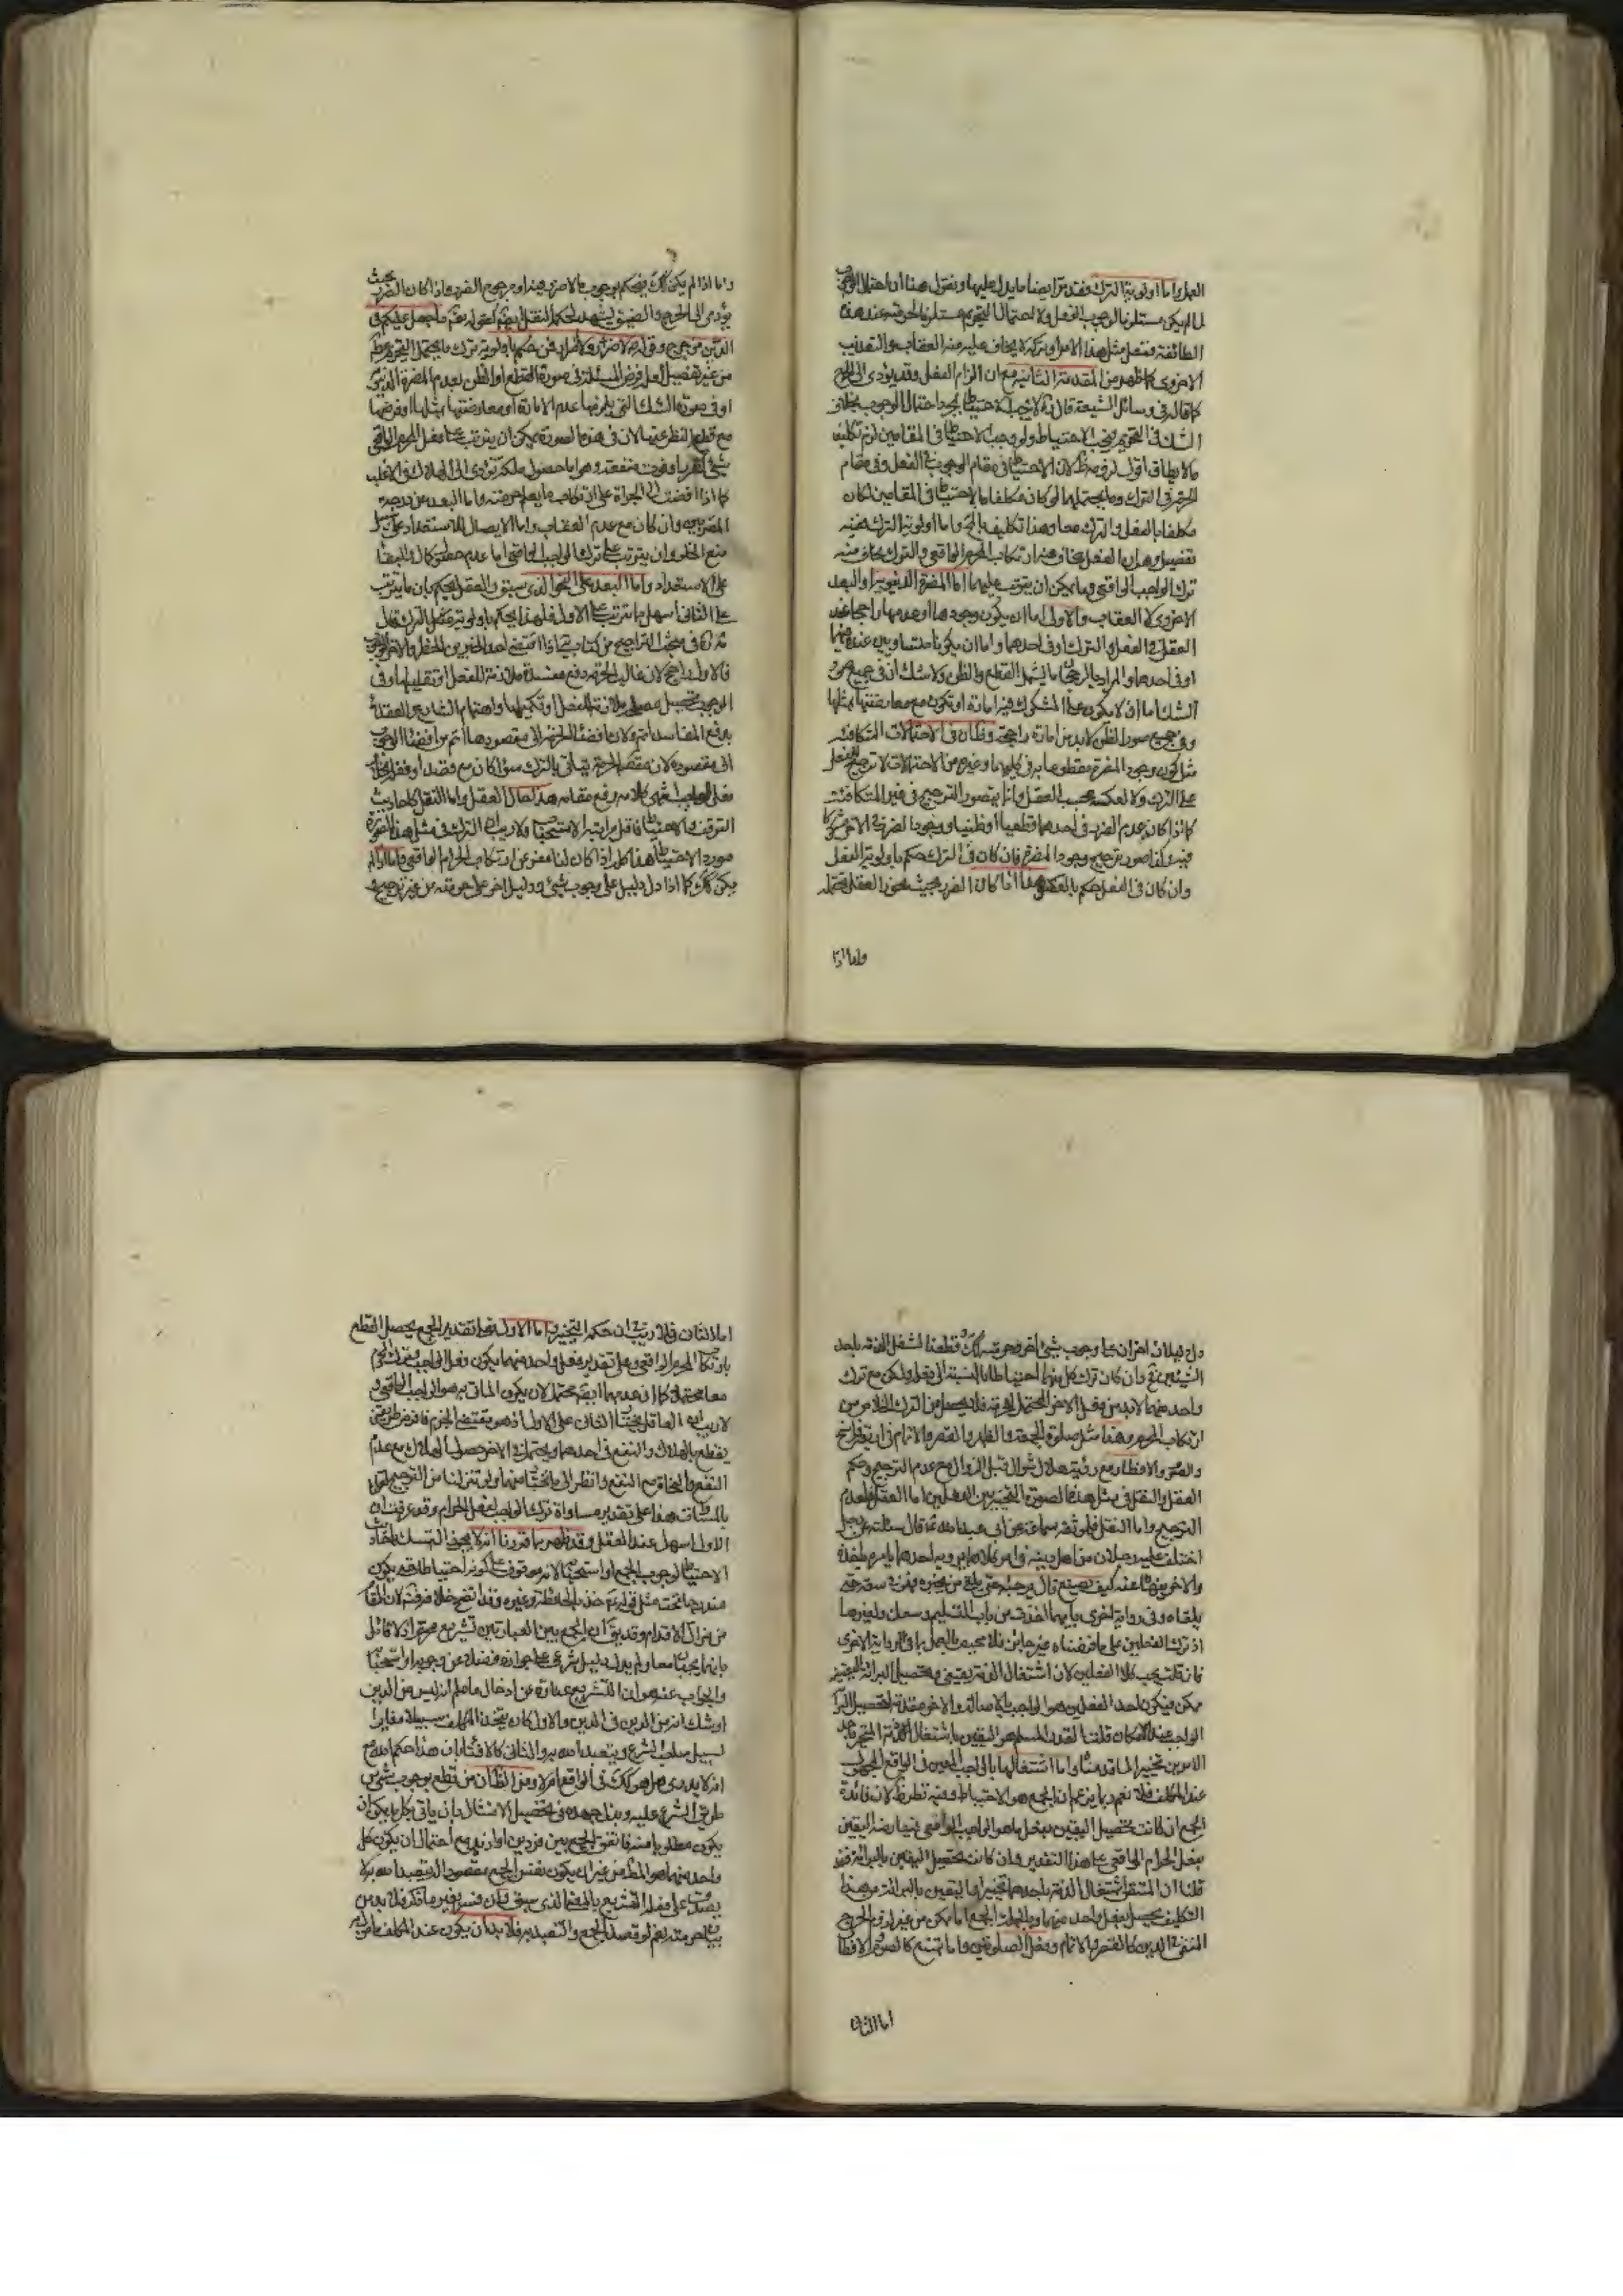 العمل واما اولوية الترك فقد مر ايضا ما يدل عليها ونقول هنا ان احتمال الوجوب
لما لم يكن مستلزما لوجوب الفعل ولا احتمال التحريم مستلزما للحرمة عند هذه
الطائفة ففعل مثل هذا الامر او تركه لا يخاف عليه منه العقاب والتعذيب
الاخروي كما ظهر من المقدمة الثانية مع ان الزام الفعل وقد يؤدى الى الحرج
كما قاله في وسائل الشيعة قال انه لا يجب الاحتياط بمجرد احتمال الوجوب بخلاف
الشك في التحريم فيجب الاحتياط ولو وجب الاحتياط في المقامين لزم تكليف
ما لا يطاق اقول لزومه لان الاحتياط في مقام الوجوب في الفعل وفي مقام
الحرمة في الترك وما يحتملهما لو كان مكلفا بالاحتياط في المقامين لكان
مكلفا بالفعل والترك معا وهذا تكليف بالمحال واما اولوية الترك ففيه
تفصيل وهو ان الفعل يخاف منه ارتكاب المحرم الواقعي والترك يخاف منه
ترك الواجب الواقعي وما يمكن ان يترتب عليهما اما المضرة الدنيوية او البعد
الاخروي لا العقاب والاولى اما ان يكون وجودها او عدمها راجحا عند
العقل في الفعل والترك او في احدهما واما ان يكونا متساويين عنده فيهما
او في احدهما والمراد بالرجحان ما يشمل القطع والظن ولا شك ان في جميع صور
الشك اما ان لا يكون على المشكوك فيه امارة او تكون مع معارضتها بمثلها
وفي جميع صور الظن لا بد من امارة راجحة وظان في الاحتمالات المتكافئة
مثل كون وجود المضرة مقطوعا به في كليهما وغيره من الاحتمالات لا ترجيح للفعل
على الترك ولا لعكسه بحسب العقل وانما يتصور الترجيح في غير المتكافئة
كما اذا كان عدم الضرر في احدهما قطعيا او ظنيا ووجود الضرر في الاخر مشكوكا
فيه وانما صور ترجيح وجود المضرة فان كان في الترك حكم باولوية الفعل
وان كان في الفعل حكم بالعكس هذا اذا كان الضرر بحيث يجوز العقل تحمله
واما اذا
واما اذا لم يكن كذلك فيحكم بوجوب ما لا ضرر فيه او مرجوح الضرر فاذا كان الضرر بحيث
يؤدى الى الحرج والضيق يشهد لحكمه النقل ايضا كقوله تعالى ما جعل عليكم في
الدين من حرج وقوله لا ضرر ولا ضرار فمن حكم باولوية ترك ما يحتمل التحريم
من غير تفصيل لعل فرض المسئلة في صورة القطع او الظن بعدم المضرة الدنيوية
او في صورة الشك التي يلزمها عدم الامارة او معارضتها بمثلها او فرضها
مع قطع النظر عنها لان في هذه الصورة يمكن ان يترتب على فعل المحرم الواقعي
شيء اقرب او فوت منفعة وهو اما حصول ملكة تؤدى الى الهلاك في الاغلب
كما اذا افضت الى الجراة على ارتكاب ما يعلم حرمته واما البعد عن درجة
المقربين وان كان مع عدم العقاب واما لا يصال للاستعداد على سبيل
منع الخلو وان يترتب على ترك الواجب الواقعي اما عدم حصول كمال والبقاء
على الاستعداد واما البعد على النحو الذي سبق والعقل يحكم بان ما يترتب
على الثاني اسهل مما يترتب على الاول فلهذا يحكم باولوية الترك قال
في مبحث التراجيح من كتاب اذا اقتضى احد الخبرين الحظر والاخر الوجوب
فالاول راجح لان غالب الحرمة دفع مفسدة ملازمة للفعل او تقليلها وفي
الوجوب تحصيل مصلحة ملازمة للفعل او تكميلها واهتمام الشارع والعقلاء
بدفع المفاسد اتم ولان افضاء الحرمة الى مقصودها اتم من افضاء الوجوب
الى مقصوده لان مقصد الحرمة يتأتى بالترك سواء كان مع قصد او غفلة بخلاف
فعل الواجب انتهى كلامه رفع مقامه هذا حال العقل واما النقل كاحاديث
التوقف والاحتياط فاقل مراتبه الاستحباب ولا ريب ان الترك في مثل هذه الصورة
مورد الاحتياط هذا كله اذا كان لنا مفر عن ارتكاب الحرام الواقعي واما اذا لم
يكن كذلك كما اذا دل دليل على وجوب شيء ودليل اخر على حرمته من غير ترجيح و
دل دليلان اخران على وجوب شيء اخر وحرمته كذلك وقطعنا لشغل الذمة باحد
الشيئين وان كان ترك كل منهما احتياطا بالنسبة الى فعله ولكن مع ترك
واحد منهما لا بد من فعل الاخر المحتمل للحرمة فلا يحصل من الترك الخلاص من
ارتكاب المحرم وهذا مثل صلوة الجمعة والظهر والقصر والاتمام في اربعة فراسخ
والصوم والافطار مع رؤية هلال شوال قبل الزوال مع عدم الترجيح وحكم
العقل والنقل في مثل هذه الصورة التخيير بين الفعلين اما العقل فلعدم
الترجيح واما النقل فلموثقة سماعة عن ابي عبد الله قال سئلته عن رجل
اختلف عليه رجلان من اهل دينه في امر كلاهما يرويه احدهما يامره باخذه
والاخر ينهاه عنه كيف يصنع قال يرجئه حتى يلقى من يخبره فهو في سعة حتى
يلقاه وفي رواية اخرى بايهما اخذت من باب التسليم وسعك ولغيرهما
اذ ترك الفعلين على ما فرضناه غير جائز فلا محيص من العمل بما في الرواية الاخرى
فان قلت يجب كلا الفعلين لان اشتغال الذمة يقيني وتحصيل البرائة اليقينية
ممكن فيكون احد الفعلين هو الواجب بالاصالة والاخر مقدمة لتحصيل البرائة
الواجب عند الامكان قلت القدر المسلم هو اليقين باشتغال الذمة باحد
الامرين تخييرا واما اشتغالها بالواجب المعين في الواقع المجهول
عند المكلف فلا نعم ربما يزعم ان الجمع هو الاحتياط وفيه نظر لان فائدة
الجمع ان كانت تحصيل اليقين بفعل ما هو الواجب الواقعي فيعارضه اليقين
بفعل الحرام الواقعي على هذا التقدير وان كانت تحصيل اليقين بالبرائة فقد
قلنا ان المتيقن اشتغال الذمة باحدهما تخييرا واليقين بالبرائة من هذا
التكليف يحصل بفعل واحد منهما وبالجملة الجمع اما ممكن من غير لزوم الحرج
المنفي في الدين كالقصر والاتمام وفعل الصلوتين واما ممتنع كالصوم والافطار
اما الثاني
اما الثاني فلا ريب في ان حكمه التخيير واما الاول فعلى تقدير الجمع يحصل القطع
بارتكاب المحرم الواقعي وعلى تقدير فعل واحد منهما يكون فعل الواجب وترك المحرم
معا محتملا كما ان عدمهما ايضا محتمل لان يكون الماتى به هو الواجب الواقعي و
لا ريب ان العاقل يختار الثاني على الاول اذ هو مقتضى الحزم فاذا فرض طريقين
يقطع بالهلاك والنفع في احدهما ويحتمل في الاخر حصول الهلاك مع عدم
النفع والنجاة مع النفع وانظر الى ما تختار منهما ولو تنزلنا من الترجيح لقلنا
بالمساوات هذا على تقدير مساواة ترك الواجب لفعل الحرام وقد عرفت ان
الاول اسهل عند العقل وقد ظهر بما قررنا انه لا يجوز التمسك باحاديث
الاحتياط لوجوب الجمع او استحبابه لانه موقوف على كونه احتياطا فيكون
مندرجا تحت مثل قوله خذ بالحائطة وغيره وقد اتضح خلافه لان المقام
من مزال الاقدام وقد يقال ان الجمع بين العبارتين تشريع محرم اذ لا قائل
بانهما يجبان معا ولم يدل دليل شرعي على جوازه فضلا عن وجوبه او استحبابه
والجواب عنه هو ان التشريع عبارة عن ادخال ما علم انه ليس من الدين
او شك انه من الدين في الدين والاول كان يتخذ المكلف سبيلا مغايرا
لسبيل صاحب الشرع ويتعبد الله به والثاني كالافتاء بان هذا حكم الله مع
انه لا يدرى هل هو كذلك في الواقع ام لا ومن الظان من قطع بوجوب شيء من
طريق الشرع عليه وبذل جهده في تحصيل الامتثال بان ياتى بكل ما يمكن ان
يكون مطلوبا منه فاتفق الجمع بين فردين او ازيد مع احتمال ان يكون كل
واحد منهما هو المطلوب من غير ان يكون نفس الجمع مقصودا للتعبد لله به لا
يصدق على فعله التشريع بالمعنى الذي سبق وان فسر بغير ما ذكر فلا بد من
بيان حرمته نعم لو قصد الجمع والتعبد به فلا بد ان يكون عند المكلف